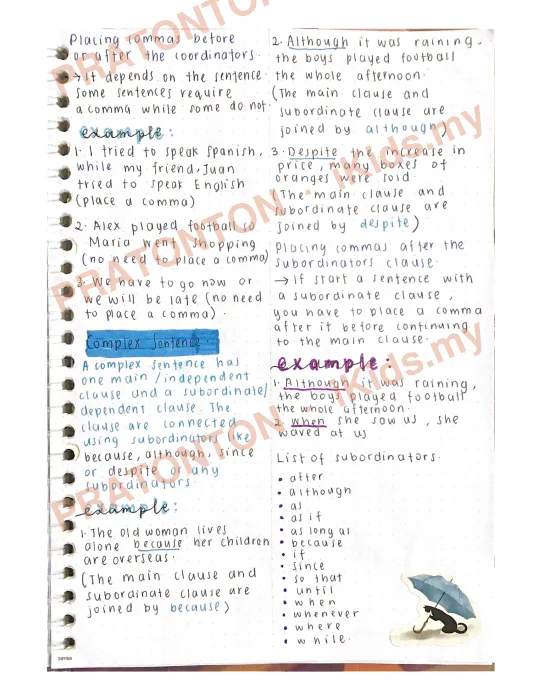 Placing commas before
or after the coordinators.
→ It depends on the sentence.
some sentences require
a comma while some do not.
example:
1. I tried to speak Spanish,
while my friend, Juan
tried to speak English
(place a comma)
2. Alex played football so
Maria went shopping
(no need to place a comma)
3. We have to go now or
we will be late (no need
to place a comma).
Complex Sentence.
A complex sentence has
one main/independent
clause and a subordinate/
dependent clause. The
clause are connected
using subordinators like
because, although, since
or despite or any
subordinators
example:
1. The old woman lives
alone because her children
are overseas.
(The main clause and
subordinate clause are
joined by because)
2. Although it was raining,
the boys played football
the whole afternoon.
(The main clause and
subordinate clause are
joined by although)
3. Despite the increase in
price, many boxes of
oranges were sold.
(The main clause and
subordinate clause are
joined by despite)
Placing commas after the
subordinators clause.
→ If start a sentence with
a subordinate clause,
you have to place a comma
after it before continuing
to the main clause.
example:
1. Although it was raining,
the boys played football
the whole afternoon.
2. When she saw us, she
waved at us
List of subordinators.
• after
• although
• as
• as if
• as long as
• because
• if
• since
• so that
• until
• when
• whenever
• where
• while.
PRATONTON : iKids.my
PRATONTON : iKids.my
PRATONTON : iKids.my